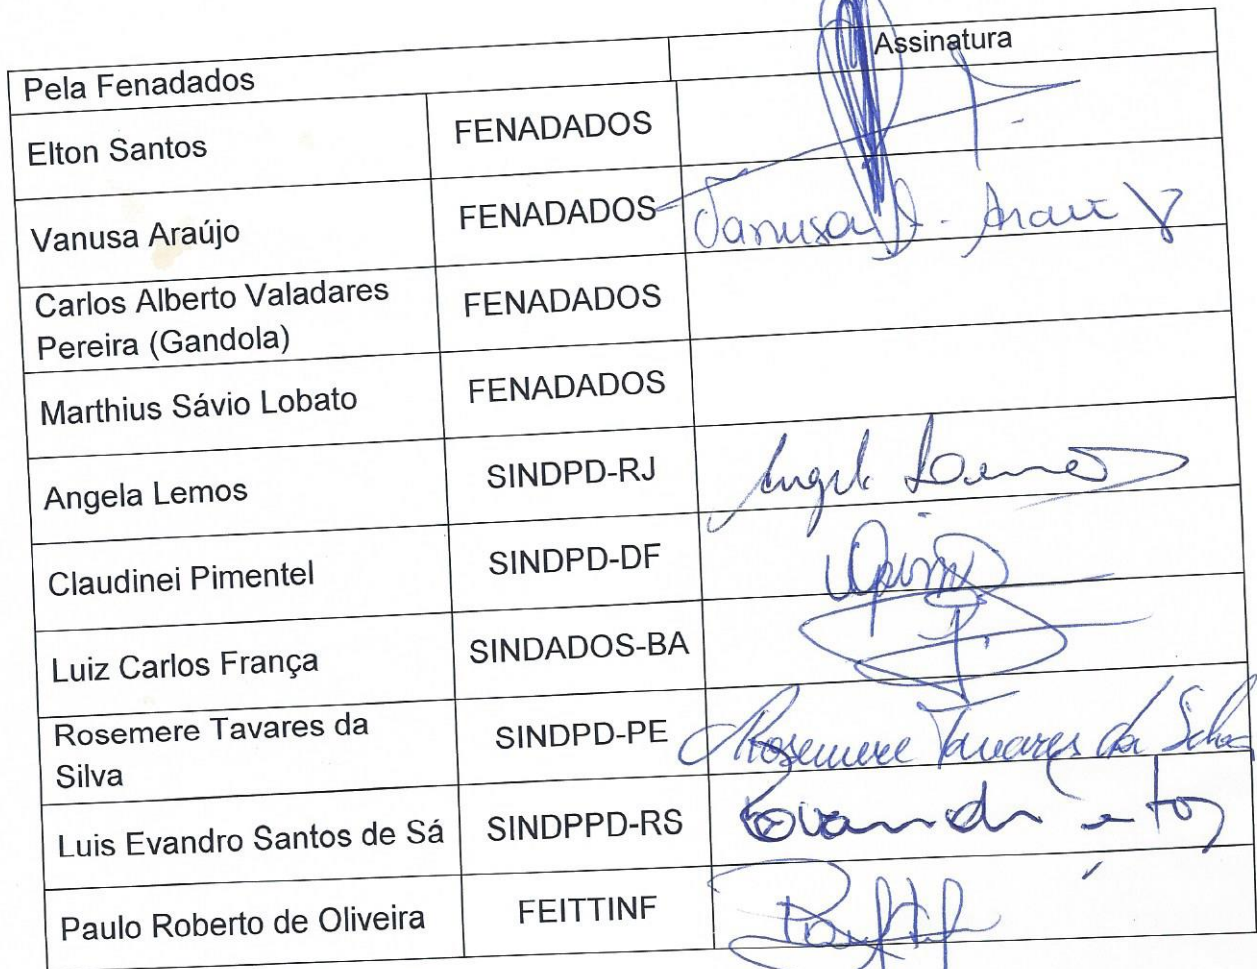 Pela Fenadados Assinatura
Elton Santos FENADADOS
Vanusa Araújo FENADADOS Vanusa
Carlos Alberto Valadares
Pereira (Gandola) FENADADOS
Marthius Sávio Lobato FENADADOS
Angela Lemos SINDPD-RJ Angela Lemos
Claudinei Pimentel SINDPD-DF
Luiz Carlos França SINDADOS-BA
Rosemere Tavares da
Silva SINDPD-PE Rosemere Tavares da Silva
Luis Evandro Santos de Sá SINDPPD-RS
Paulo Roberto de Oliveira FEITTINF